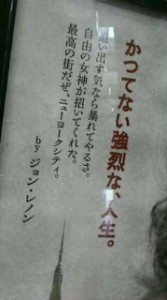 かつてない強烈な、人生。
追い出す気なら暴れてやるさ。
自由の女神が招いてくれた。
最高の街だぜ、ニューヨークシティ。
by ジョン・レノン